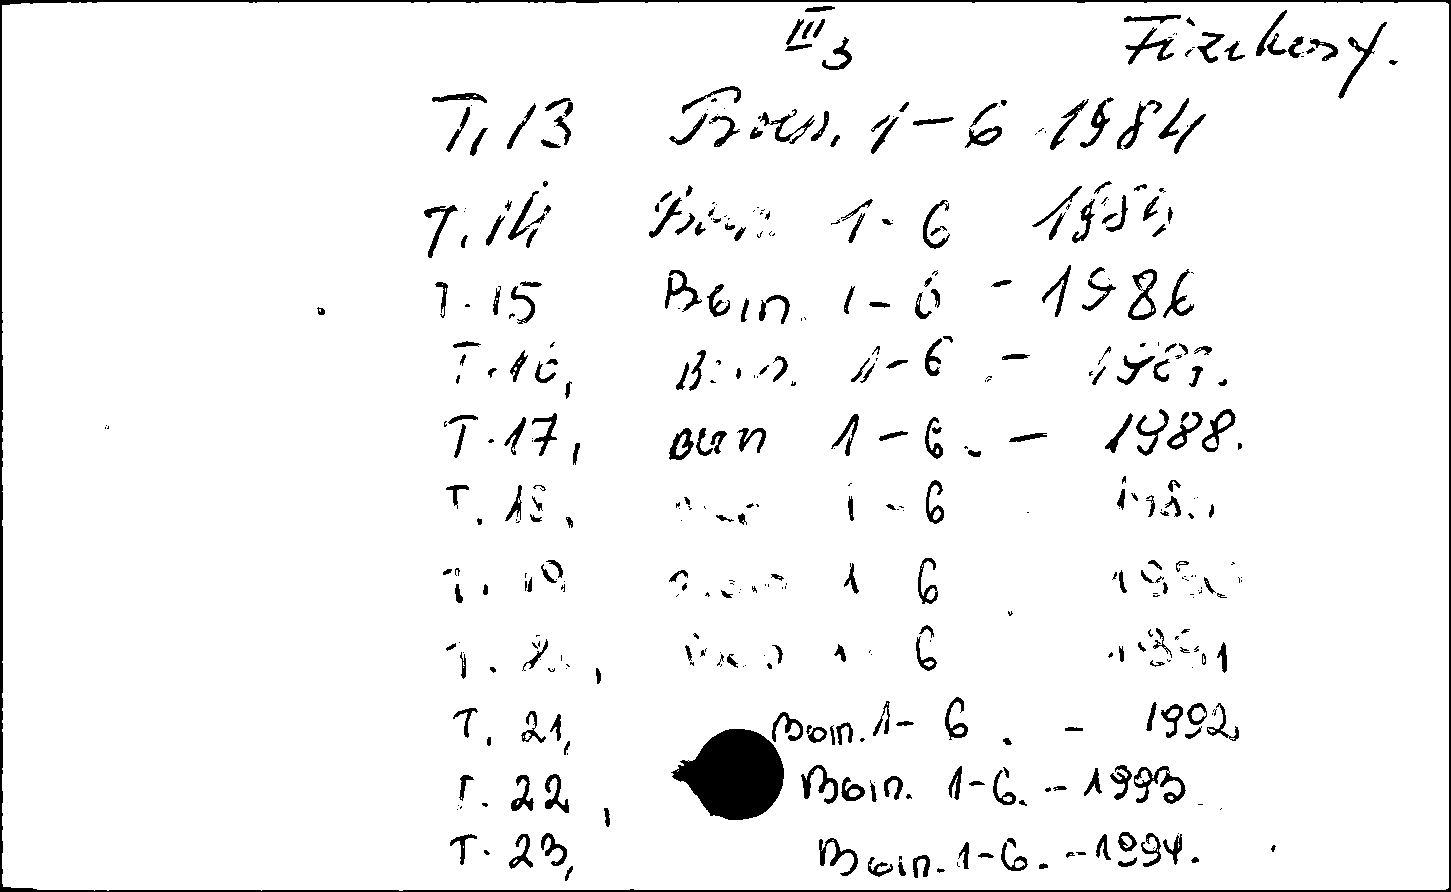 III 3 Fizzkosf.
Т. 13 Вып. 1-6 1984
Т. 14 Вып 1-6 1985
Т. 15 Вып. 1-6 - 1986
Т. 16, Вып. 1-6. - 1987.
Т. 17, Вып 1-6. - 1988.
Т. 18, 1-6
Т. 19 1 6 1990
Т. 1 6 1991
Т. 21, Вып. 1-6. - 1992
Т. 22, Вып. 1-6. - 1993
Т. 23, Вып. 1-6. - 1994.